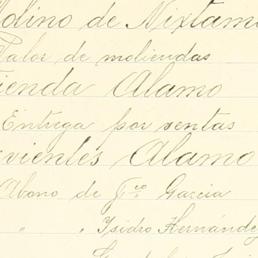 Molino de Nixtama
Valor de moliendas
ienda Alamo
Entrega por ventas
vientes Alamo
Abono de Fco Garcia
" " Isidro Hernández